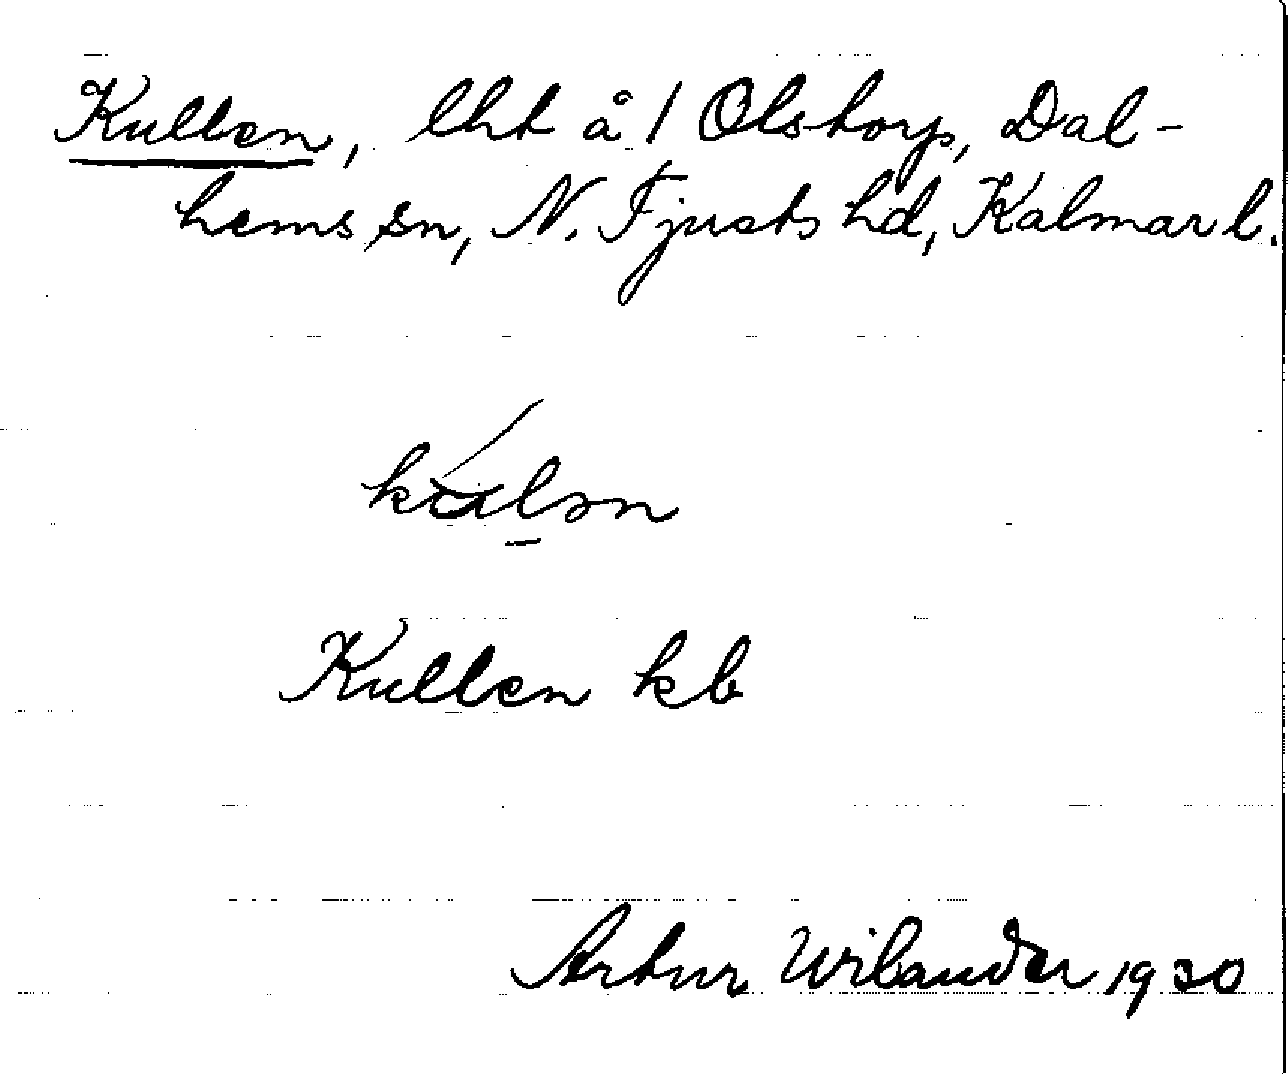 Kullen, lht å 1 Olstorp, Dal-
hems sn, N. Tjusts hd, Kalmar l.
Kullen kb
Artur Wilander 1930